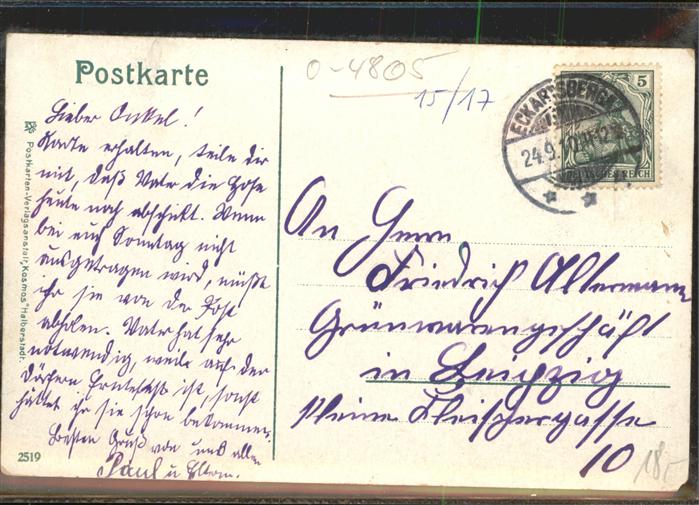 Postkarte
Lieber Onkel!
Karte erhalten, teile dir
mit, daß Vater die Hose
heute noch abschickt. Wenn
bei euch Sonntag nicht
ausgetragen wird, müßte
ihr sie von der Post
abholen. Vater hat sehr
notwendig, weil auf den
Dörfern Erntefest ist, sonst
hättet ihr sie schon bekommen.
Besten Gruß von uns allen
Paul u Eltern.
2519
Postkarten-Verlagsanstalt „Kosmos" Halberstadt.
0-4805
15/17
ECKARTSBERGA
24.9.10
5
DEUTSCHES REICH
An Herrn
Friedrich Altermann
Grünwarengeschäft
in Leipzig
Kleine Fleischergasse
10
18,-